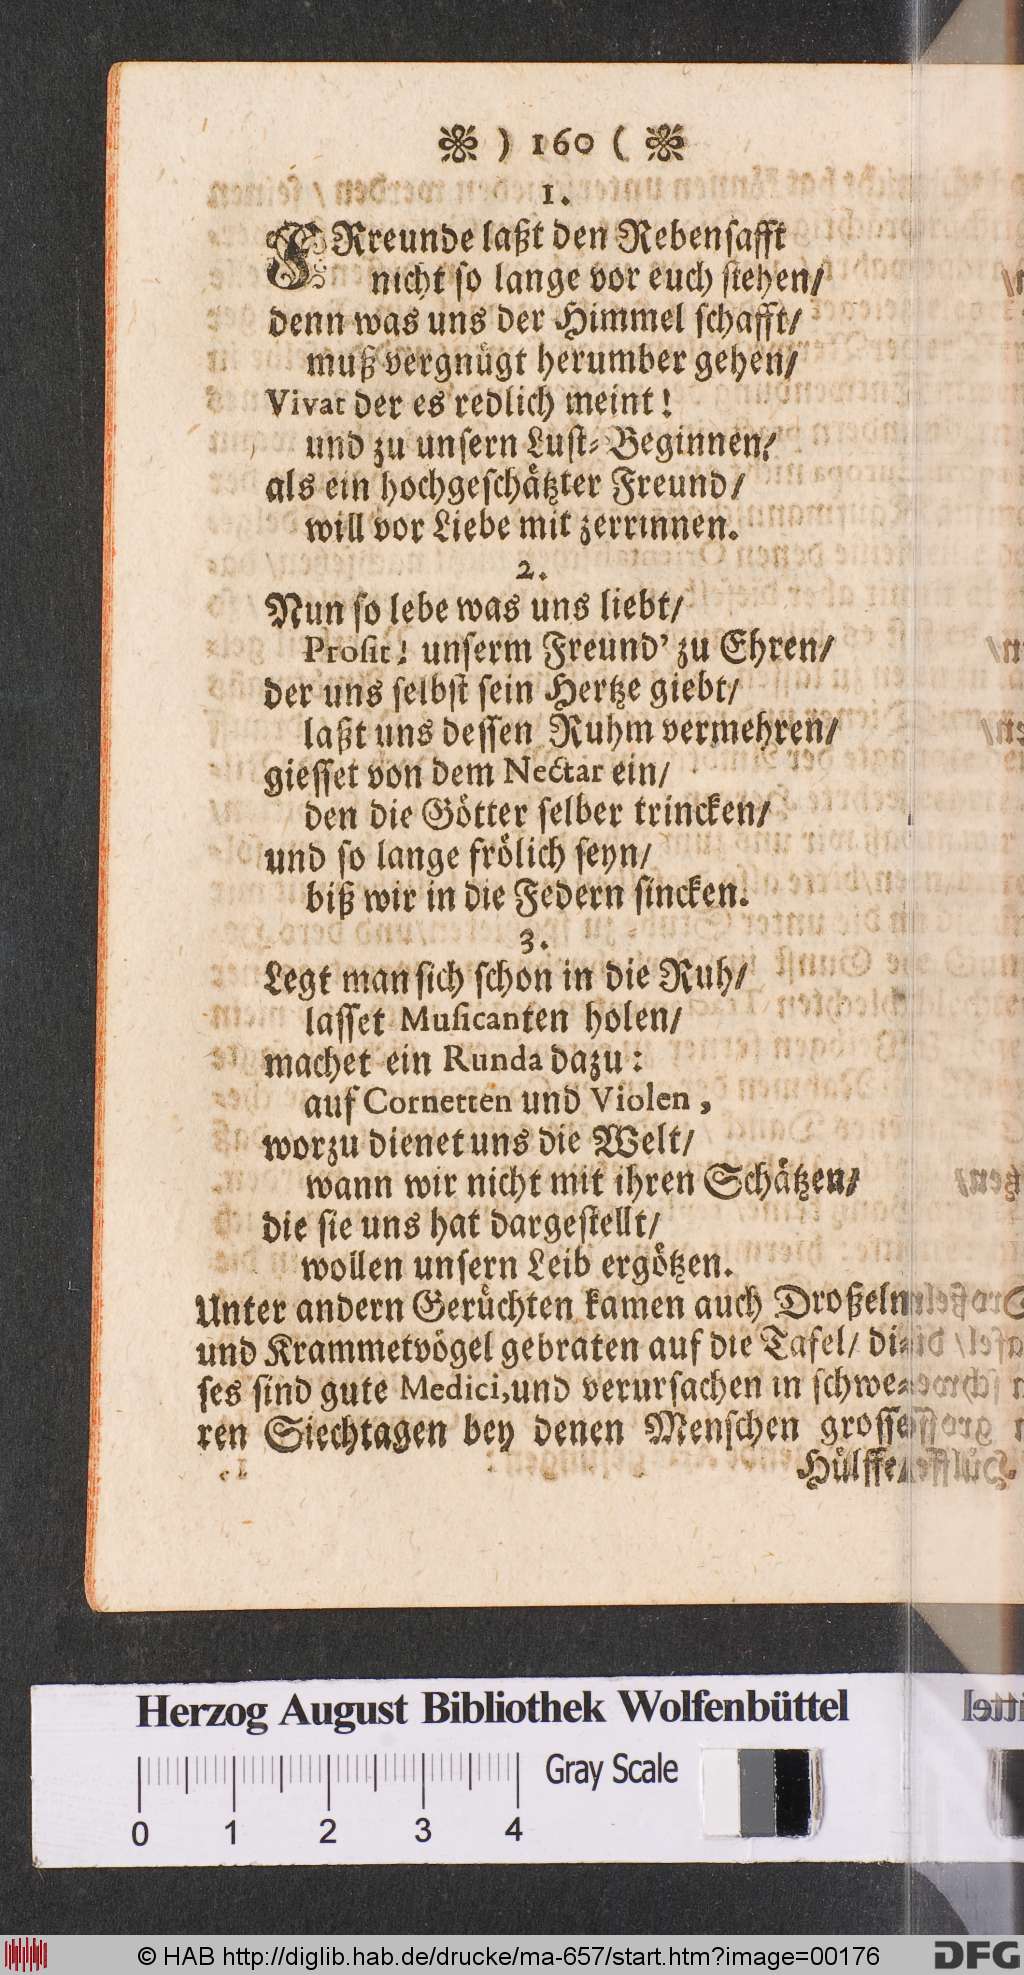 ❧ ) 160 ( ❧
1.
FRreunde laßt den Rebensafft
nicht so lange vor euch stehen/
denn was uns der Himmel schafft/
muß vergnuͤgt herumber gehen/
Vivat der es redlich meint!
und zu unsern Lust-Beginnen/
als ein hochgeschaͤtzter Freund/
will vor Liebe mit zerrinnen.
2.
Nun so lebe was uns liebt/
Prosit! unserm Freund' zu Ehren/
der uns selbst sein Hertze giebt/
laßt uns dessen Ruhm vermehren/
giesset von dem Nectar ein/
den die Goͤtter selber trincken/
und so lange froͤlich seyn/
biß wir in die Federn sincken.
3.
Legt man sich schon in die Ruh/
lasset Musicanten holen/
machet ein Runda dazu:
auf Cornetten und Violen,
worzu dienet uns die Welt/
wann wir nicht mit ihren Schaͤtzen/
die sie uns hat dargestellt/
wollen unsern Leib ergoͤtzen.
Unter andern Geruͤchten kamen auch Droßeln
und Krammetvoͤgel gebraten auf die Tafel/ di-
ses sind gute Medici, und verursachen in schwe-
ren Siechtagen bey denen Menschen grosse
Huͤlffe/
Herzog August Bibliothek Wolfenbüttel
Gray Scale
0 1 2 3 4
© HAB http://diglib.hab.de/drucke/ma-657/start.htm?image=00176
DFG